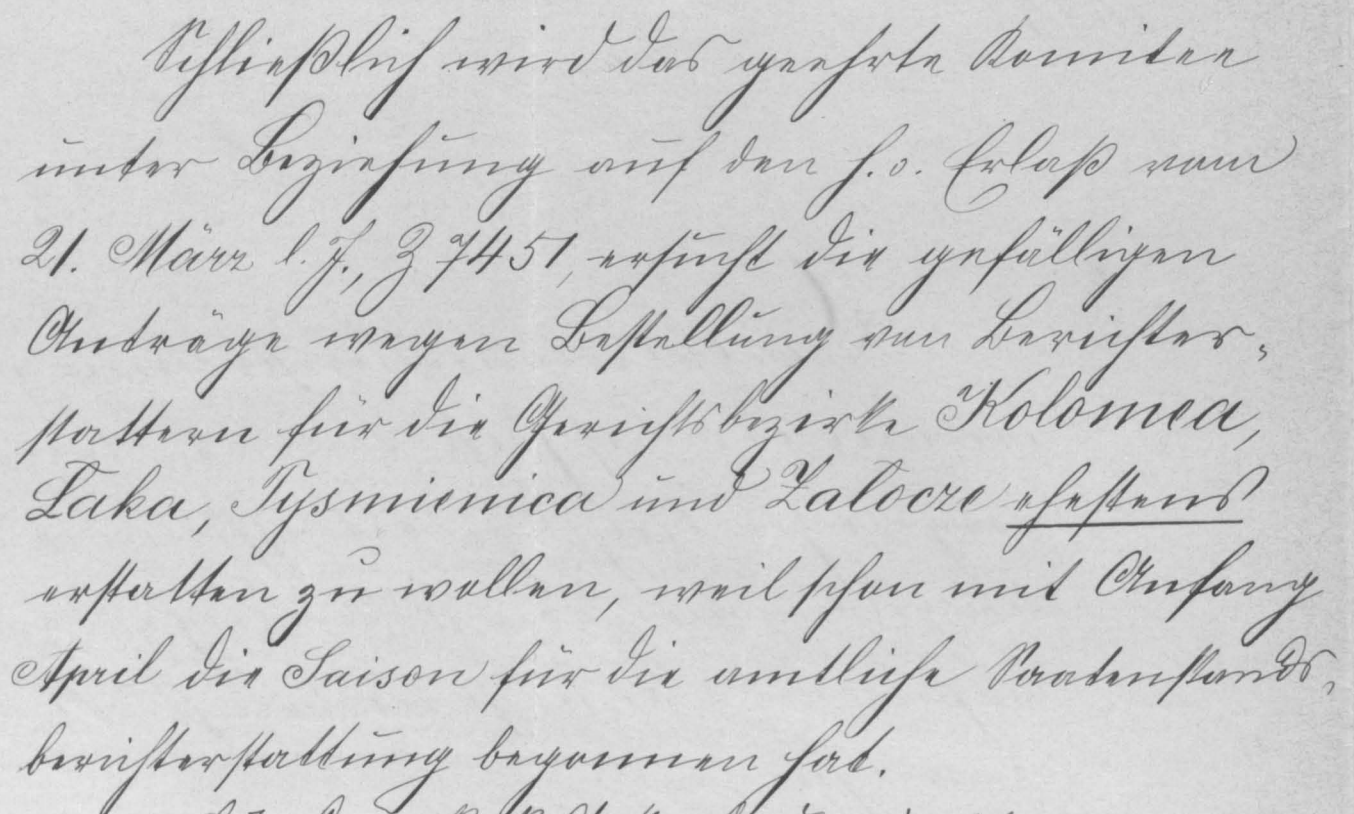 Schließlich wird das geehrte Komitee
unter Beziehung auf den h. o. Erlaß vom
21. März l. J., Z 7451, ersucht die gefälligen
Anträge wegen Bestellung von Berichter-
stattern für die Gerichtsbezirke Kolomea,
Łaka, Tysmienica und Załocze ehestens
erstatten zu wollen, weil schon mit Anfang
April die Saison für die amtliche Saatenstands-
berichterstattung begonnen hat.